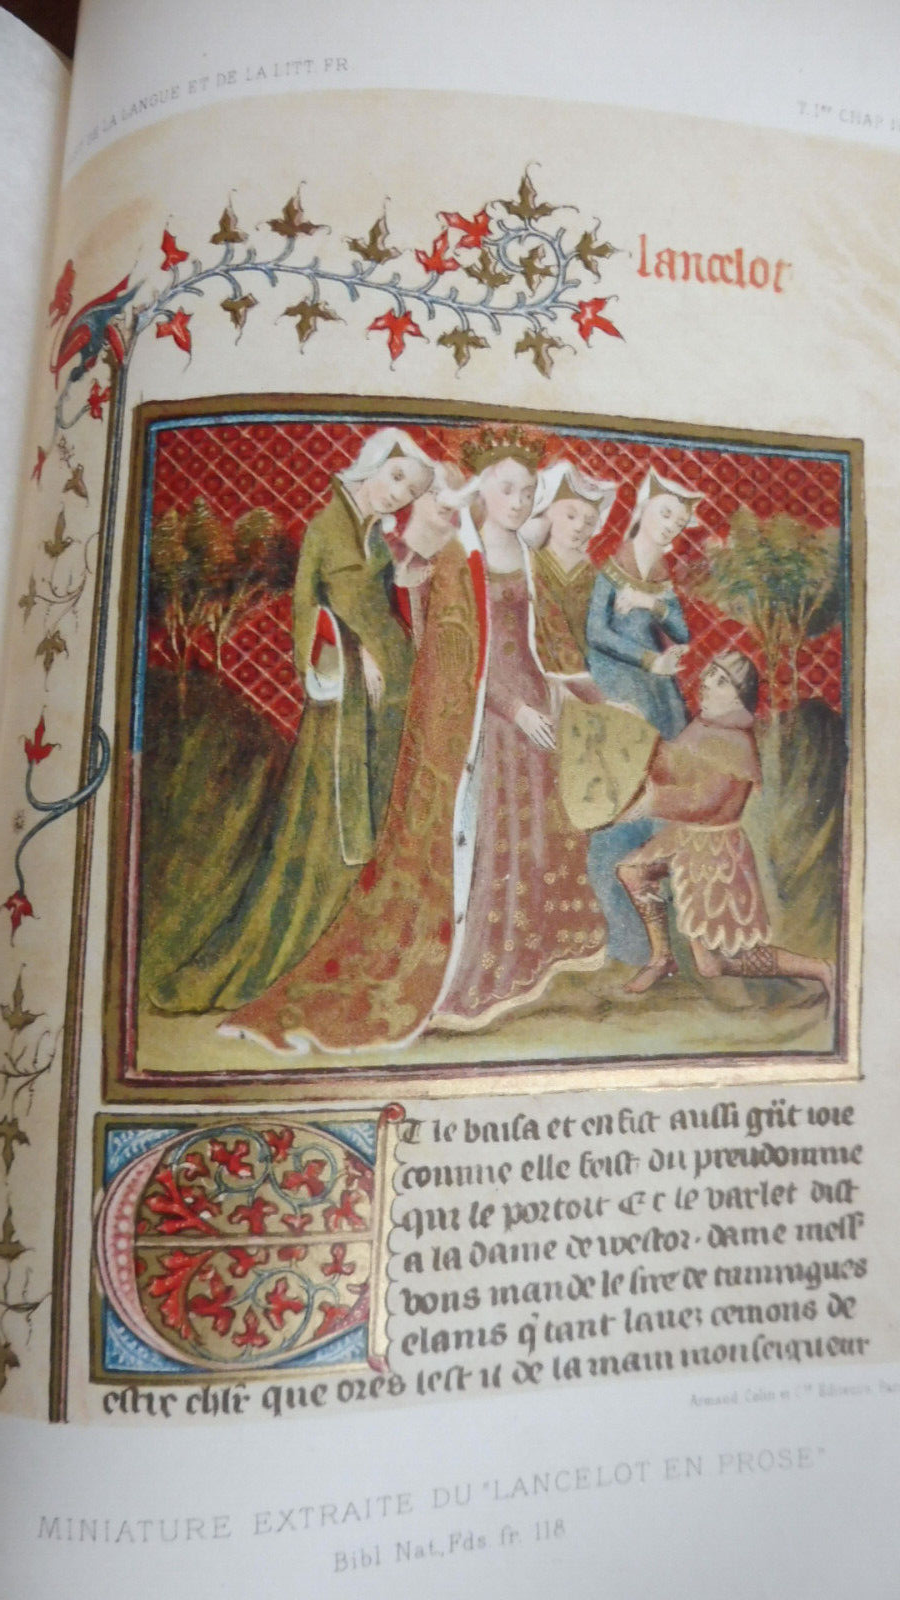 DE LA LANGUE ET DE LA LITT. FR.
T. Ier CHAP
lancelot
Et le baisa et en fist aussi grãt ioie
comme elle feist du preudomme
qui le portoit Et le varlet dist
a la dame de westor. dame mess
vous mande le sire de
clanis q̃ tant lauez cemons de
estre chlr̃ que ores lest il de la main monseigneur
Armand Colin et Cie Editeurs, Paris
MINIATURE EXTRAITE DU "LANCELOT EN PROSE"
Bibl. Nat., Fds. fr. 118